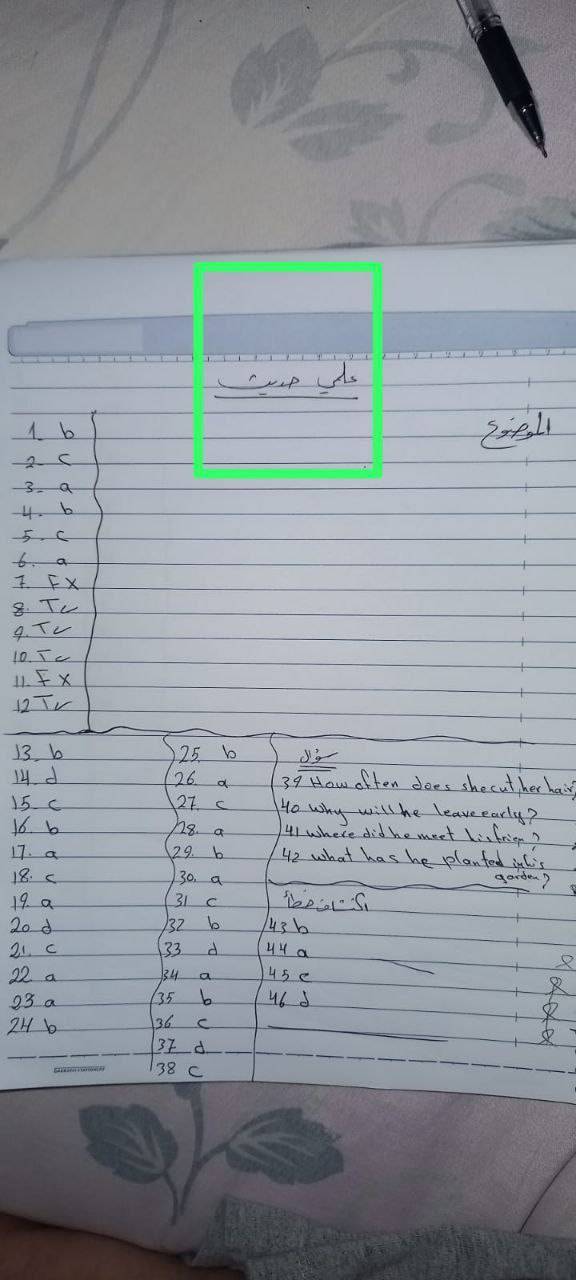 علمي حديث
الموضوع
1. b
2- c
3- a
4- b
5- c
6- a
7. F X
8. T✓
9. T✓
10. T✓
11. F X
12 T✓
13. b
14. d
15. c
16. b
17. a
18. c
19. a
20 d
21. c
22 a
23 a
24 b
25. b
26. a
27. c
28. a
29. b
30. a
31 c
32 b
33 d
34 a
35 b
36 c
37 d
38 c
سؤال
39 How often does she cut her hair?
40 why will he leave early?
41 where did he meet his frien?
42 what has he planted in his
garden?
اكتشاف خطأ
43 b
44 a
45 c
46 d